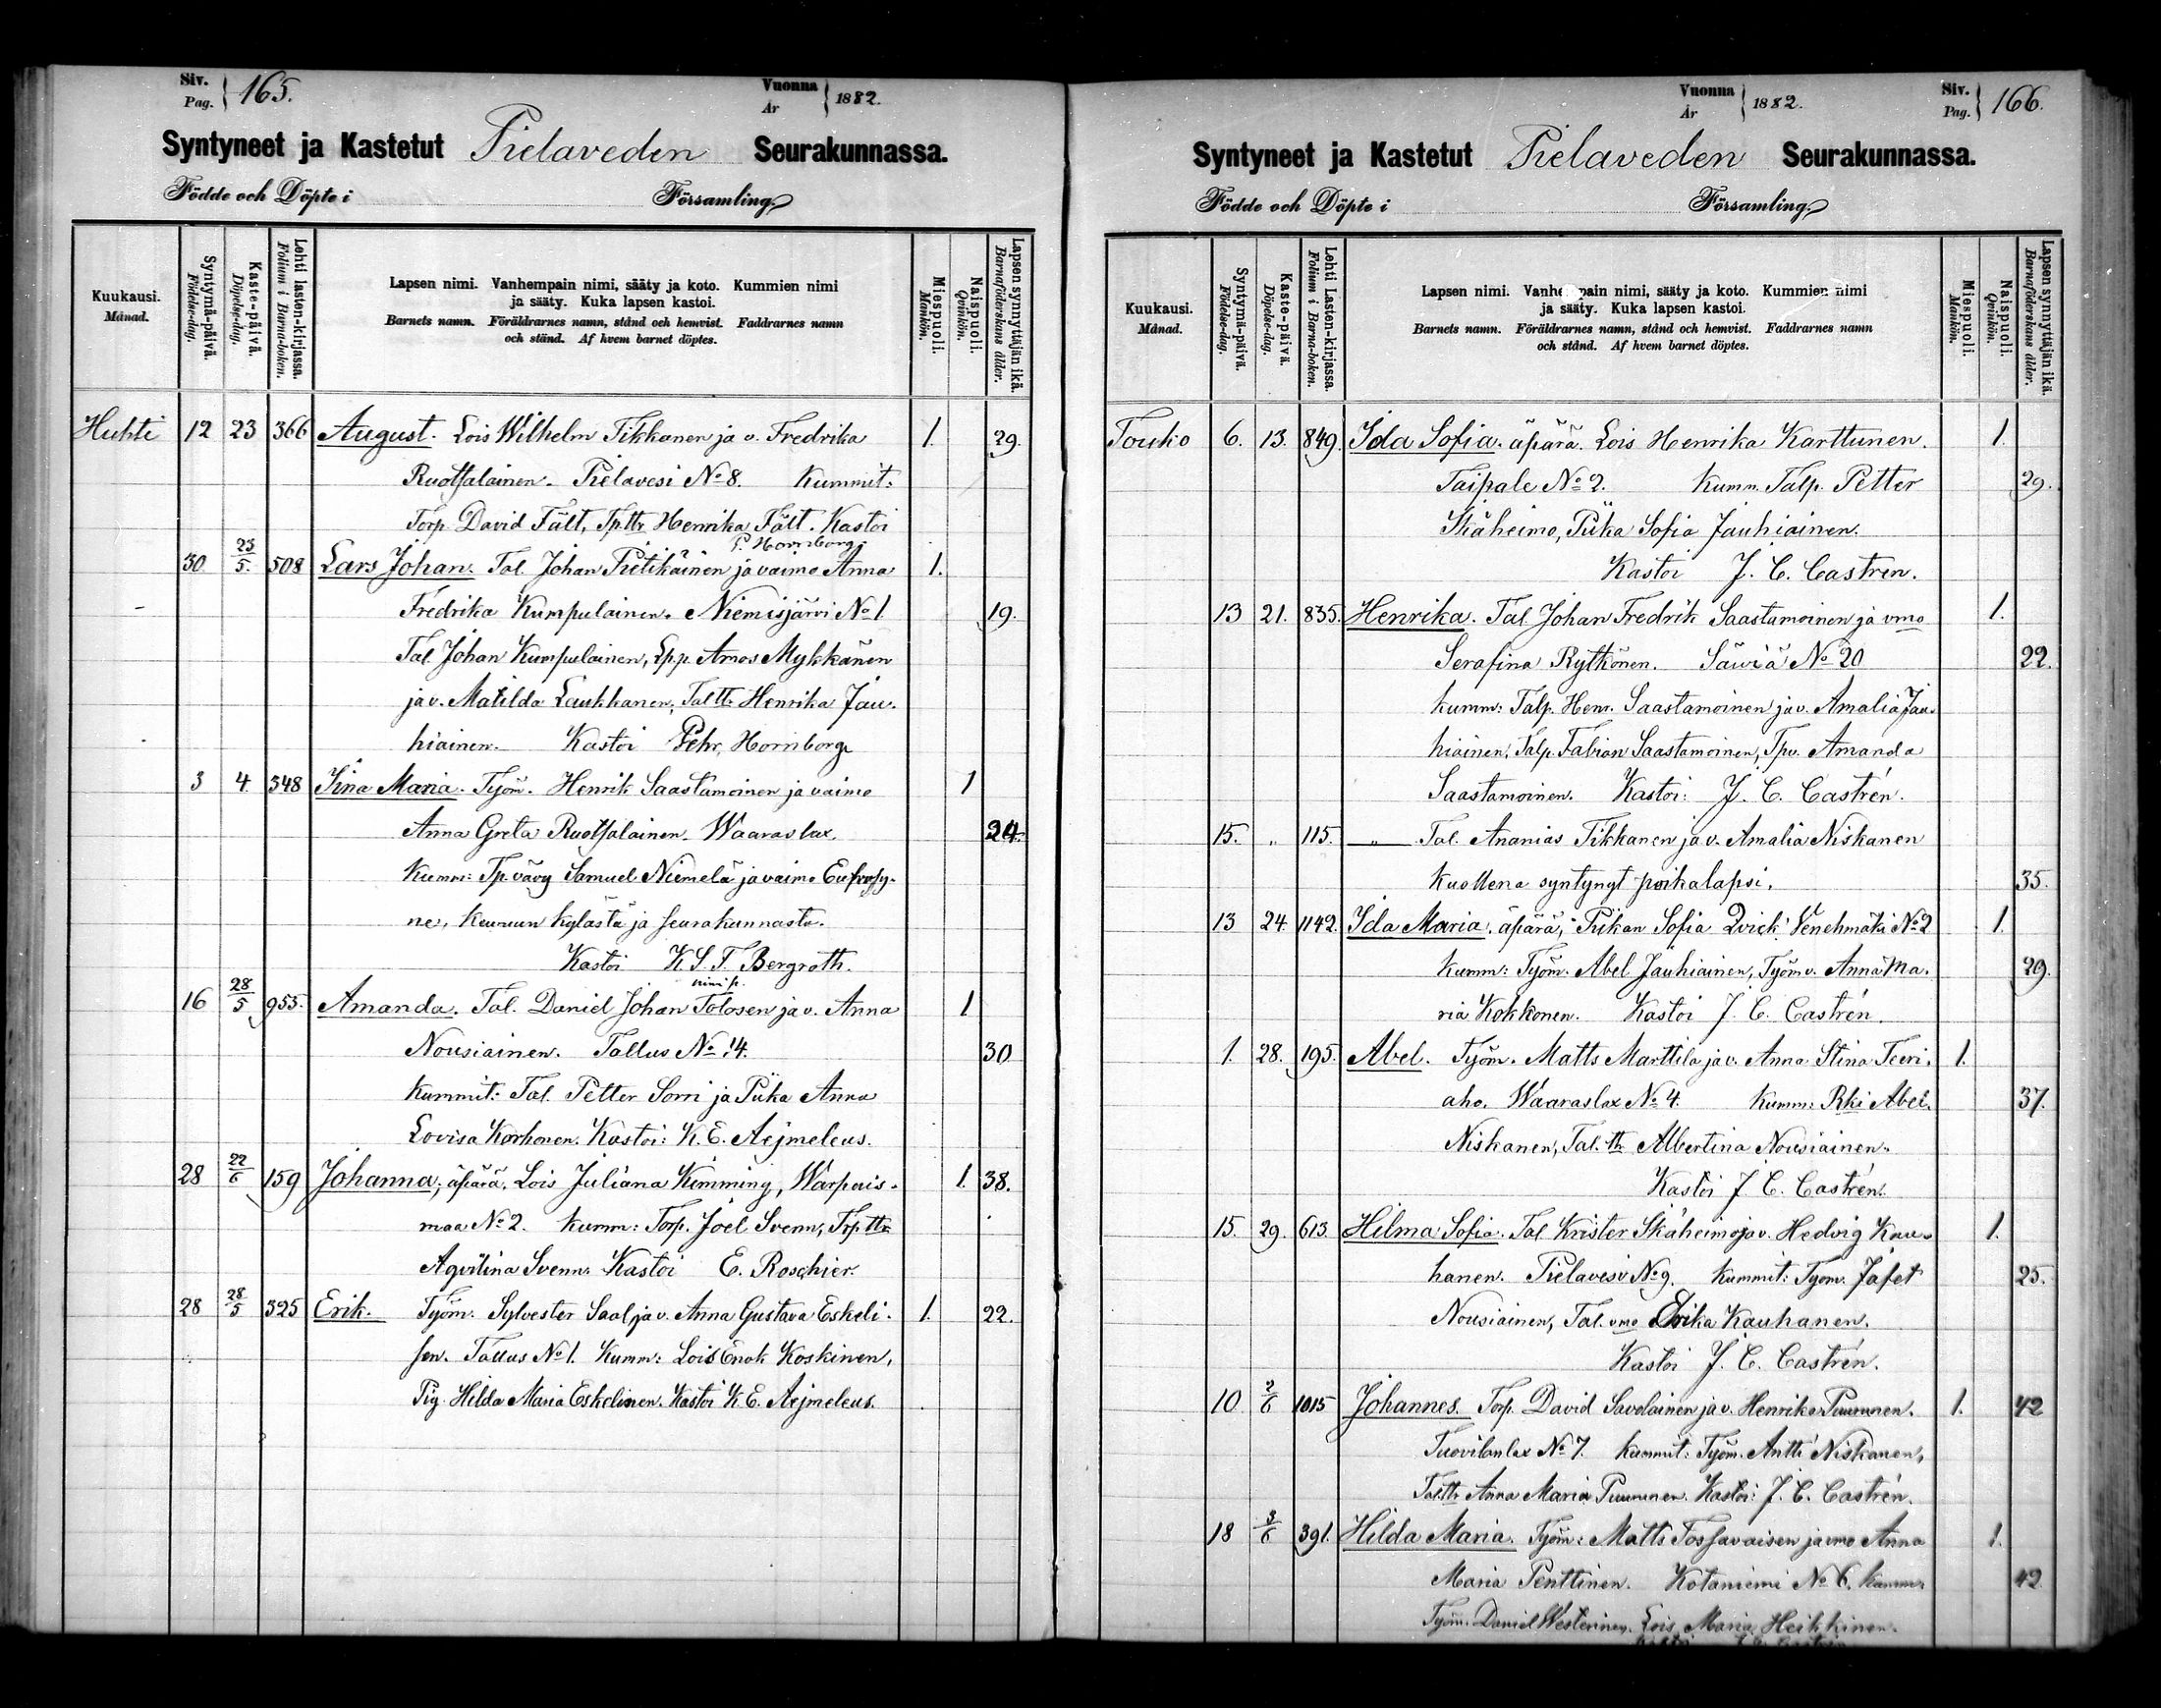 Siv.
Pag. 165.
Vuonna
År 1882.
Syntyneet ja Kastetut Pielaveden Seurakunnassa.
Födde och Döpte i Församling.
Kuukausi.
Månad.
Syntymä-päivä.
Födelse-dag.
Kaste-päivä.
Döpelse-dag.
Lehti lasten-kirjassa.
Folium i Barna-boken.
Lapsen nimi. Vanhempain nimi, sääty ja koto. Kummien nimi
ja sääty. Kuka lapsen kastoi.
Barnets namn. Föräldrarnes namn, stånd och hemvist. Faddrarnes namn
och stånd. Af hvem barnet döptes.
Miespuoli.
Mankön.
Naispuoli.
Qvinkön.
Lapsen synnyttäjän ikä.
Barnaföderskans ålder.
Huhti 12 23 366 August. Lois Wilhelm Tikkanen ja v. Fredrika 1. 29.
Ruotsalainen. Pielavesi No 8. Kummit:
Torp. David Fält, Tp.ttr Henrika Fält. Kastoi
P. Hornborg.
30 23/5. 508 Lars Johan. Tal. Johan Pietikäinen ja vaimo Anna 1.
Fredrika Kumpulainen. Niemisjärvi No 1. 19.
Tal. Johan Kumpulainen, Lp.p. Amos Mykkänen
ja v. Matilda Laukkanen, Tal ttr Henrika Jau-
hiainen. Kastoi Pehr Hornborg
3 4 348 Iina Maria. Työm. Henrik Saastamoinen ja vaimo 1
Anna Greta Ruotsalainen. Waaraslax. 24.
Kumm: Tp. vävy Samuel Niemelä ja vaimo Eufrosy-
ne, Keuruun kylästä ja seurakunnasta.
Kastoi K. S. F. Bergroth.
nimi p.
16 28/5 955. Amanda. Tal. Daniel Johan Tolosen ja v. Anna 1
Nousiainen. Tallus No 14. 30
Kummit: Tal. Petter Sorri ja Piika Anna
Lovisa Korhonen. Kastoi: K. E. Aejmeleus.
28 22/6 159 Johanna, äpärä. Lois Juliana Kimming, Warpais- 1. 38.
maa No 2. Kumm: Torp. Joel Svenn, Trp.ttr
Aqvilina Svenn. Kastoi E. Roschier.
28 28/5 325 Erik. Työm. Sylvester Saal ja v. Anna Gustava Eskeli- 1. 22.
sen. Tallus No 1. Kumm: Lois Enok Koskinen,
Pig. Hilda Maria Eskelinen. Kastoi K. E. Aejmeleus.
Vuonna
År 1882.
Siv.
Pag. 166.
Syntyneet ja Kastetut Pielaveden Seurakunnassa.
Födde och Döpte i Församling.
Kuukausi.
Månad.
Syntymä-päivä.
Födelse-dag.
Kaste-päivä.
Döpelse-dag.
Lehti Lasten-kirjassa.
Folium i Barna-boken.
Lapsen nimi. Vanhempain nimi, sääty ja koto. Kummien nimi
ja sääty. Kuka lapsen kastoi.
Barnets namn. Föräldrarnes namn, stånd och hemvist. Faddrarnes namn
och stånd. Af hvem barnet döptes.
Miespuoli.
Mankön.
Naispuoli.
Qvinkön.
Lapsen synnyttäjän ikä.
Barnaföderskans ålder.
Touko 6. 13. 849. Ida Sofia. äpärä. Lois Henrika Karttunen. 1.
Taipale No 2. Kumm. Talp. Petter 29.
Skäheimo, Piika Sofia Jauhiainen.
Kastoi J. C. Castrén.
13 21. 835. Henrika. Tal Johan Fredrik Saastamoinen ja vmo 1.
Serafina Rytkönen. Säwiä No 20 22.
Kumm: Talp. Henr. Saastamoinen ja v. Amalia Jau-
hiainen, Talp. Fabian Saastamoinen, Tpv. Amanda
Saastamoinen. Kastoi: J. C. Castrén.
15. " 115. — " — Tal. Ananias Tikkanen ja v. Amalia Niskanen
Kuollena syntynyt poikalapsi. 35.
13 24. 1142. Ida Maria. äpärä, Piikan Sofia Qvick Venehmäki No 2 1.
Kumm: Työm. Abel Jauhiainen, Työm v. Anna Ma- 29.
ria Kokkonen. Kastoi J. C. Castrén.
1. 28. 195. Abel. Työm. Matts Marttila ja v. Anna Stina Teeri- 1.
aho. Waaraslax No 4. Kumm: Rki Abel 37.
Niskanen, Tal. ttr Albertina Nousiainen.
Kastoi J. C. Castrén.
15. 29. 613. Hilma Sofia. Tal Krister Skäheimo ja v. Hedvig Kau- 1.
hanen. Pielavesi No 9. Kummit: Työm. Jafet 25.
Nousiainen, Tal. vmo Erika Kauhanen.
Kastoi J. C. Castrén.
10 2/6 1015 Johannes. Torp. David Savolainen ja v. Henrika Puumnen. 1. 42
Tuovilanlax No 7. Kummit: Työm. Antti Niskanen,
Tal.ttr Anna Maria Puumnen. Kastoi: J. C. Castrén.
18 3/6 391. Hilda Maria. Työm: Matts Tossavaisen ja vmo Anna 1.
Maria Penttinen. Kotaniemi No 6. Kumm: 42
Työm. Daniel Westerinen. Lois Maria Heikkinen.